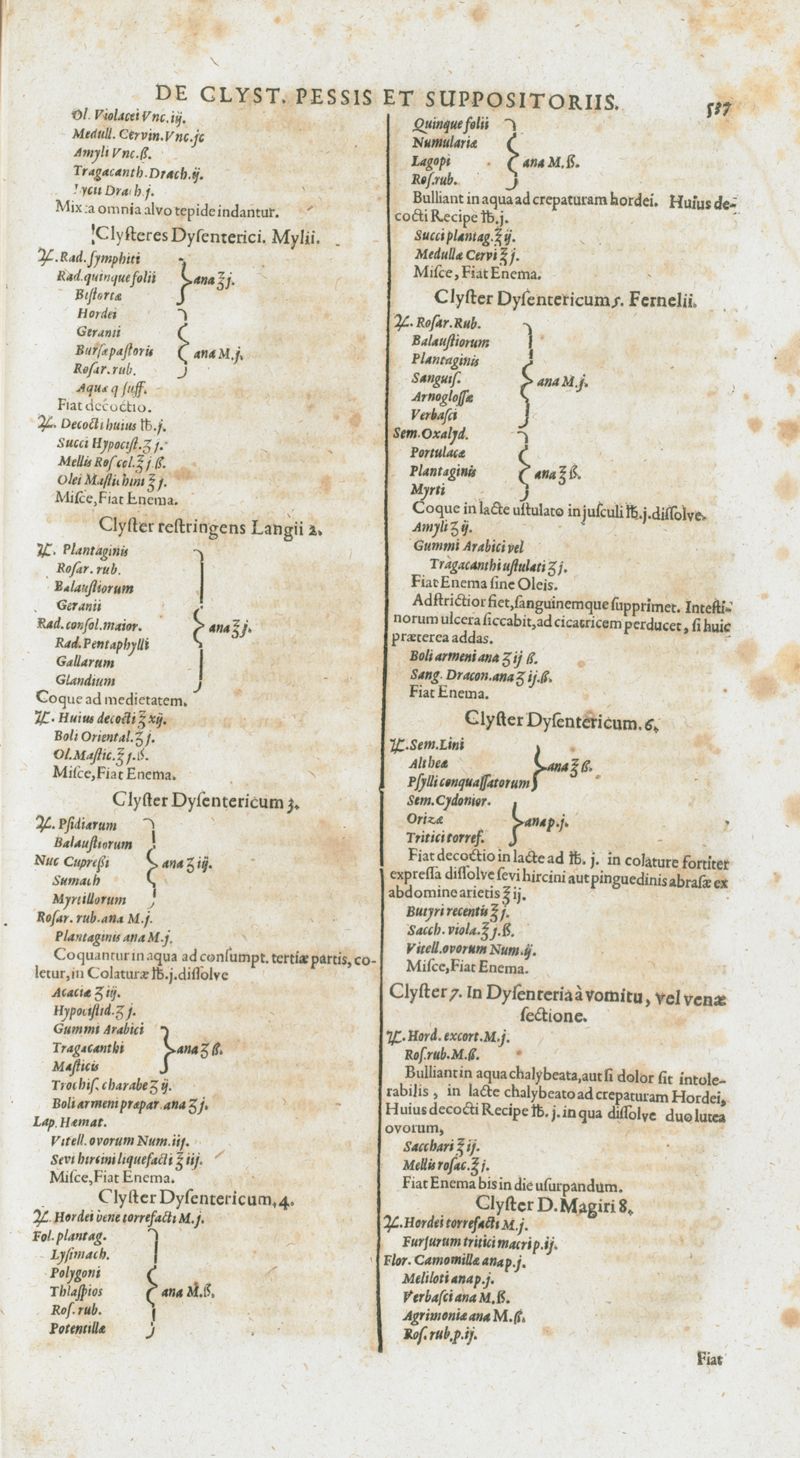 DE CLYST. PESSIS ET SUPPOSITORIIS. 537
Ol. Violacei Vnc. iij.
Medull. Cervin. Vnc. jc
Amyli Vnc. ß.
Tragacanth. Drach. ij.
Lycii Drach. j.
Mixta omnia alvo tepide indantur.
Clyſteres Dyſenterici. Mylii.
♃. Rad. ſymphiti
Rad. quinque folii
Biſtortæ
} ana ℥ j.
Hordei
Geranii
Burſæ paſtoris
Roſar. rub.
} ana M. j.
Aquæ q ſuff.
Fiat decoctio.
♃. Decocti huius ℔. j.
Succi Hypociſt. ʒ j.
Mellis Roſ col. ℥ j ß.
Olei Maſtichini ℥ j.
Miſce, Fiat Enema.
Clyſter reſtringens Langii 2.
♃. Plantaginis
Roſar. rub.
Balauſtiorum
Geranii
Rad. conſol. maior.
Rad. Pentaphylli
Gallarum
Glandium
} ana ℥ j.
Coque ad medietatem.
♃. Huius decocti ℥ xij.
Boli Oriental. ʒ j.
Ol. Maſtic. ℥ j. ß.
Miſce, Fiat Enema.
Clyſter Dyſentericum 3.
♃. Pſidiarum
Balauſtiorum
Nuc Cupreßi
Sumach
Myrtillorum
} ana ʒ iij.
Roſar. rub. ana M. j.
Plantaginis ana M. j.
Coquantur in aqua ad conſumpt. tertiæ partis, co-
letur, in Colaturæ ℔. j. diſſolve
Acaciæ ʒ ij.
Hypociſtid. ʒ j.
Gummi Arabici
Tragacanthi
Maſticis
} ana ʒ ß.
Trochiſ. charabe ʒ ij.
Boli armeni præpar. ana ʒ j.
Lap. Hæmat.
Vitell. ovorum Num. iij.
Sevi hircini liquefacti ℥ iij.
Miſce, Fiat Enema.
Clyſter Dyſentericum, 4.
♃. Hordei bene torrefacti M. j.
Fol. plantag.
Lyſimach.
Polygoni
Thlaſpios
Roſ. rub.
Potentillæ
} ana M. ß.
Quinque folii
Numulariæ
Lagopi
Roſ. rub.
} ana M. ß.
Bulliant in aqua ad crepaturam hordei. Huius de-
cocti Recipe ℔. j.
Succi plantag. ℥ ij.
Medullæ Cervi ℥ j.
Miſce, Fiat Enema.
Clyſter Dyſentericum 5. Fernelii.
♃. Roſar. Rub.
Balauſtiorum
Plantaginis
Sanguiſ.
Arnogloſſæ
Verbaſci
} ana M. j.
Sem. Oxalyd.
Portulacæ
Plantaginis
Myrti
} ana ℥ ß.
Coque in lacte uſtulato in juſculi ℔. j. diſſolve.
Amyli ʒ ij.
Gummi Arabici vel
Tragacanthi uſtulati ʒ j.
Fiat Enema ſine Oleis.
Adſtrictior fiet, ſanguinemque ſupprimet. Inteſti-
norum ulcera ſiccabit, ad cicatricem perducet, ſi huic
præterea addas.
Boli armeni ana ʒ ij ß.
Sang. Dracon. ana ʒ ij. ß.
Fiat Enema.
Clyſter Dyſentericum. 6.
♃. Sem. Lini
Altheæ
Pſylli conquaſſatorum
} ana ℥ ß.
Sem. Cydonior.
Orizæ
Tritici torref.
} ana p. j.
Fiat decoctio in lacte ad ℔. j. in colature fortiter
expreſſa diſſolve ſevi hircini aut pinguedinis abraſæ ex
abdomine arietis ℥ ij.
Butyri recentis ℥ j.
Sacch. viola. ℥ j. ß.
Vitell. ovorum Num. ij.
Miſce, Fiat Enema.
Clyſter 7. In Dyſenteria à vomitu, vel venæ
ſectione.
♃. Hord. excort. M. j.
Roſ. rub. M. ß.
Bulliant in aqua chalybeata, aut ſi dolor ſit intole-
rabilis, in lacte chalybeato ad crepaturam Hordei,
Huius decocti Recipe ℔. j. in qua diſſolve duo lutea
ovorum,
Sacchari ℥ ij.
Mellis roſac. ℥ j.
Fiat Enema bis in die uſurpandum.
Clyſter D. Magiri 8.
♃. Hordei torrefacti M. j.
Furfurum tritici macri p. ij.
Flor. Camomillæ ana p. j.
Meliloti ana p. j.
Verbaſci ana M. ß.
Agrimoniæ ana M. ß.
Roſ. rub. p. ij.
Fiat